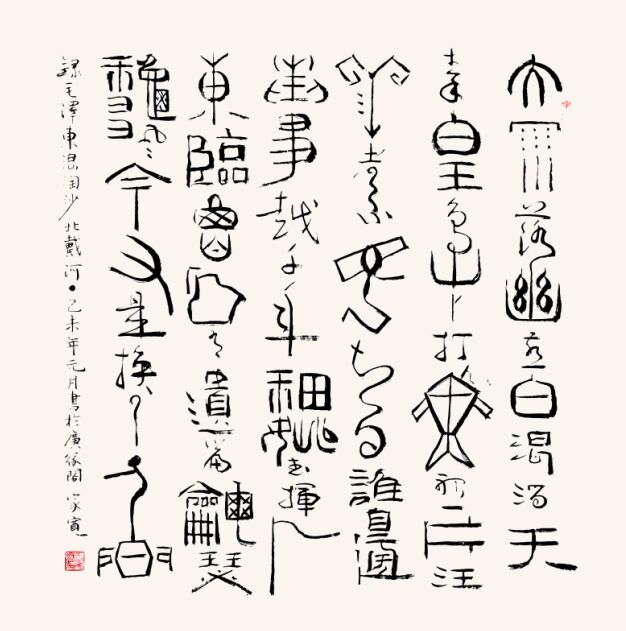 大雨落幽燕白浪滔天
秦皇島外打魚船一片汪
洋都不見知向誰邊
往事越千年魏武揮鞭
東臨碣石有遺篇蕭瑟
秋風今又是換了人間
錄毛澤東浪淘沙北戴河·己未年元月書於廣緣閣家寬